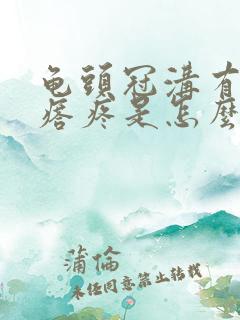 龟頭冠溝有
瘩疼是怎麼
蒲倫
未任同意禁止转载